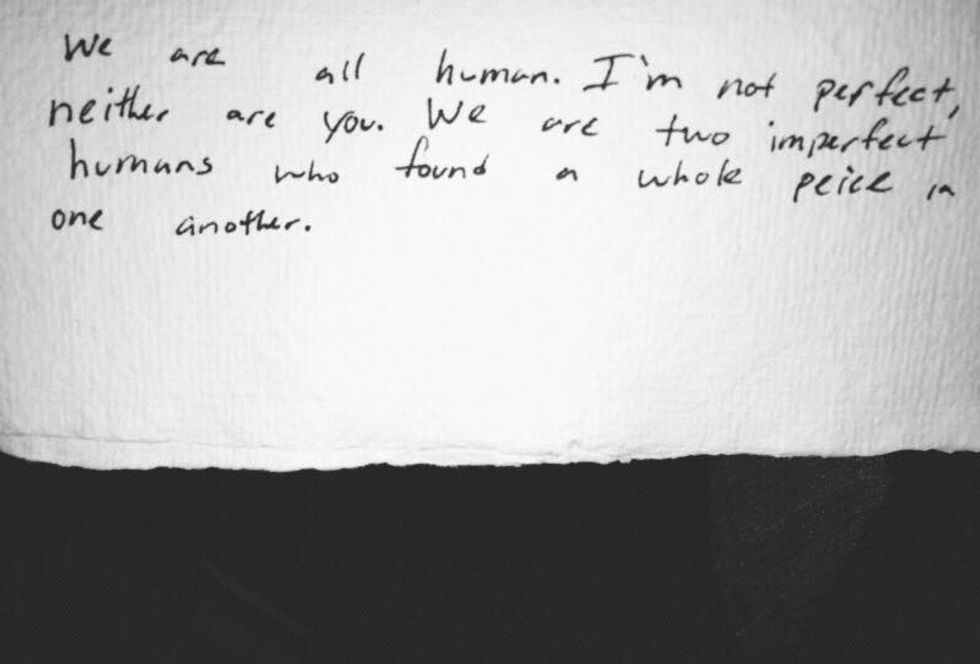 We are all human. I'm not perfect,
neither are you. We are two imperfect
humans who found a whole peice in
one another.